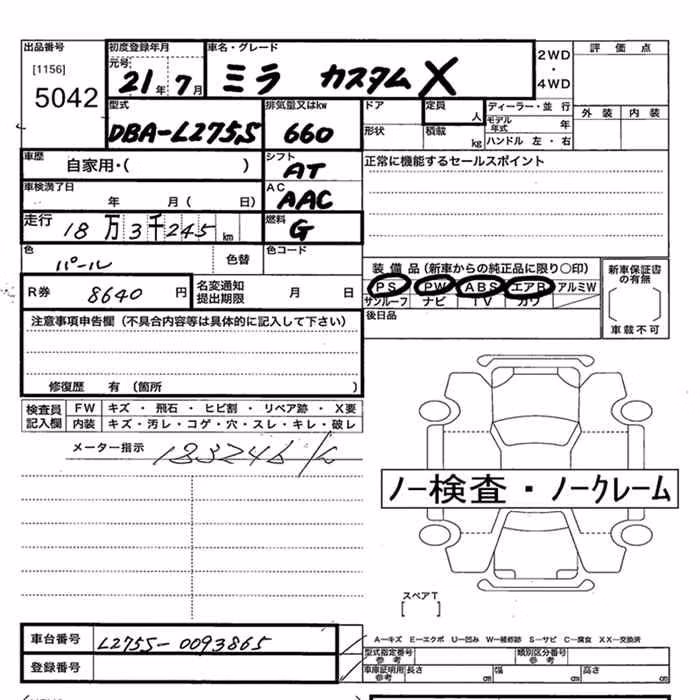 出品番号 初度登録年月 車名・グレード 2WD 評価点
[1156] 元号 ・
5042 21年 7月 ミラ カスタム X 4WD
型式 排気量又はkw ドア 定員 人 ディーラー・並行 外装 内装
DBA-L275S 660 形状 積載 kg モデル年式 年
ハンドル 左・右
車歴 自家用・( ) シフト AT 正常に機能するセールスポイント
車検満了日 年 月( 日) AC AAC
走行 18万3千245km 燃料 G
色 パール 色替 色コード
装備品(新車からの純正品に限り○印) 新車保証書の有無
R券 8640円 名変通知提出期限 月 日 PS PW ABS エアB アルミW
サンルーフ ナビ TV カワ
注意事項申告欄(不具合内容等は具体的に記入して下さい) 後日品 車載不可
修復歴 有(箇所 )
検査員 FW キズ・飛石・ヒビ割・リペア跡・X要
記入欄 内装 キズ・汚レ・コゲ・穴・スレ・キレ・破レ
メーター指示 183245K
ノー検査・ノークレーム
スペアT
[ ]
車台番号 L275S-0093865
A―キズ E―エクボ U―凹み W―補修跡 S―サビ C―腐食 XX―交換済
型式指定番号 参考 類別区分番号 参考
登録番号 車庫証明用 参考 長さ cm 幅 cm 高さ cm